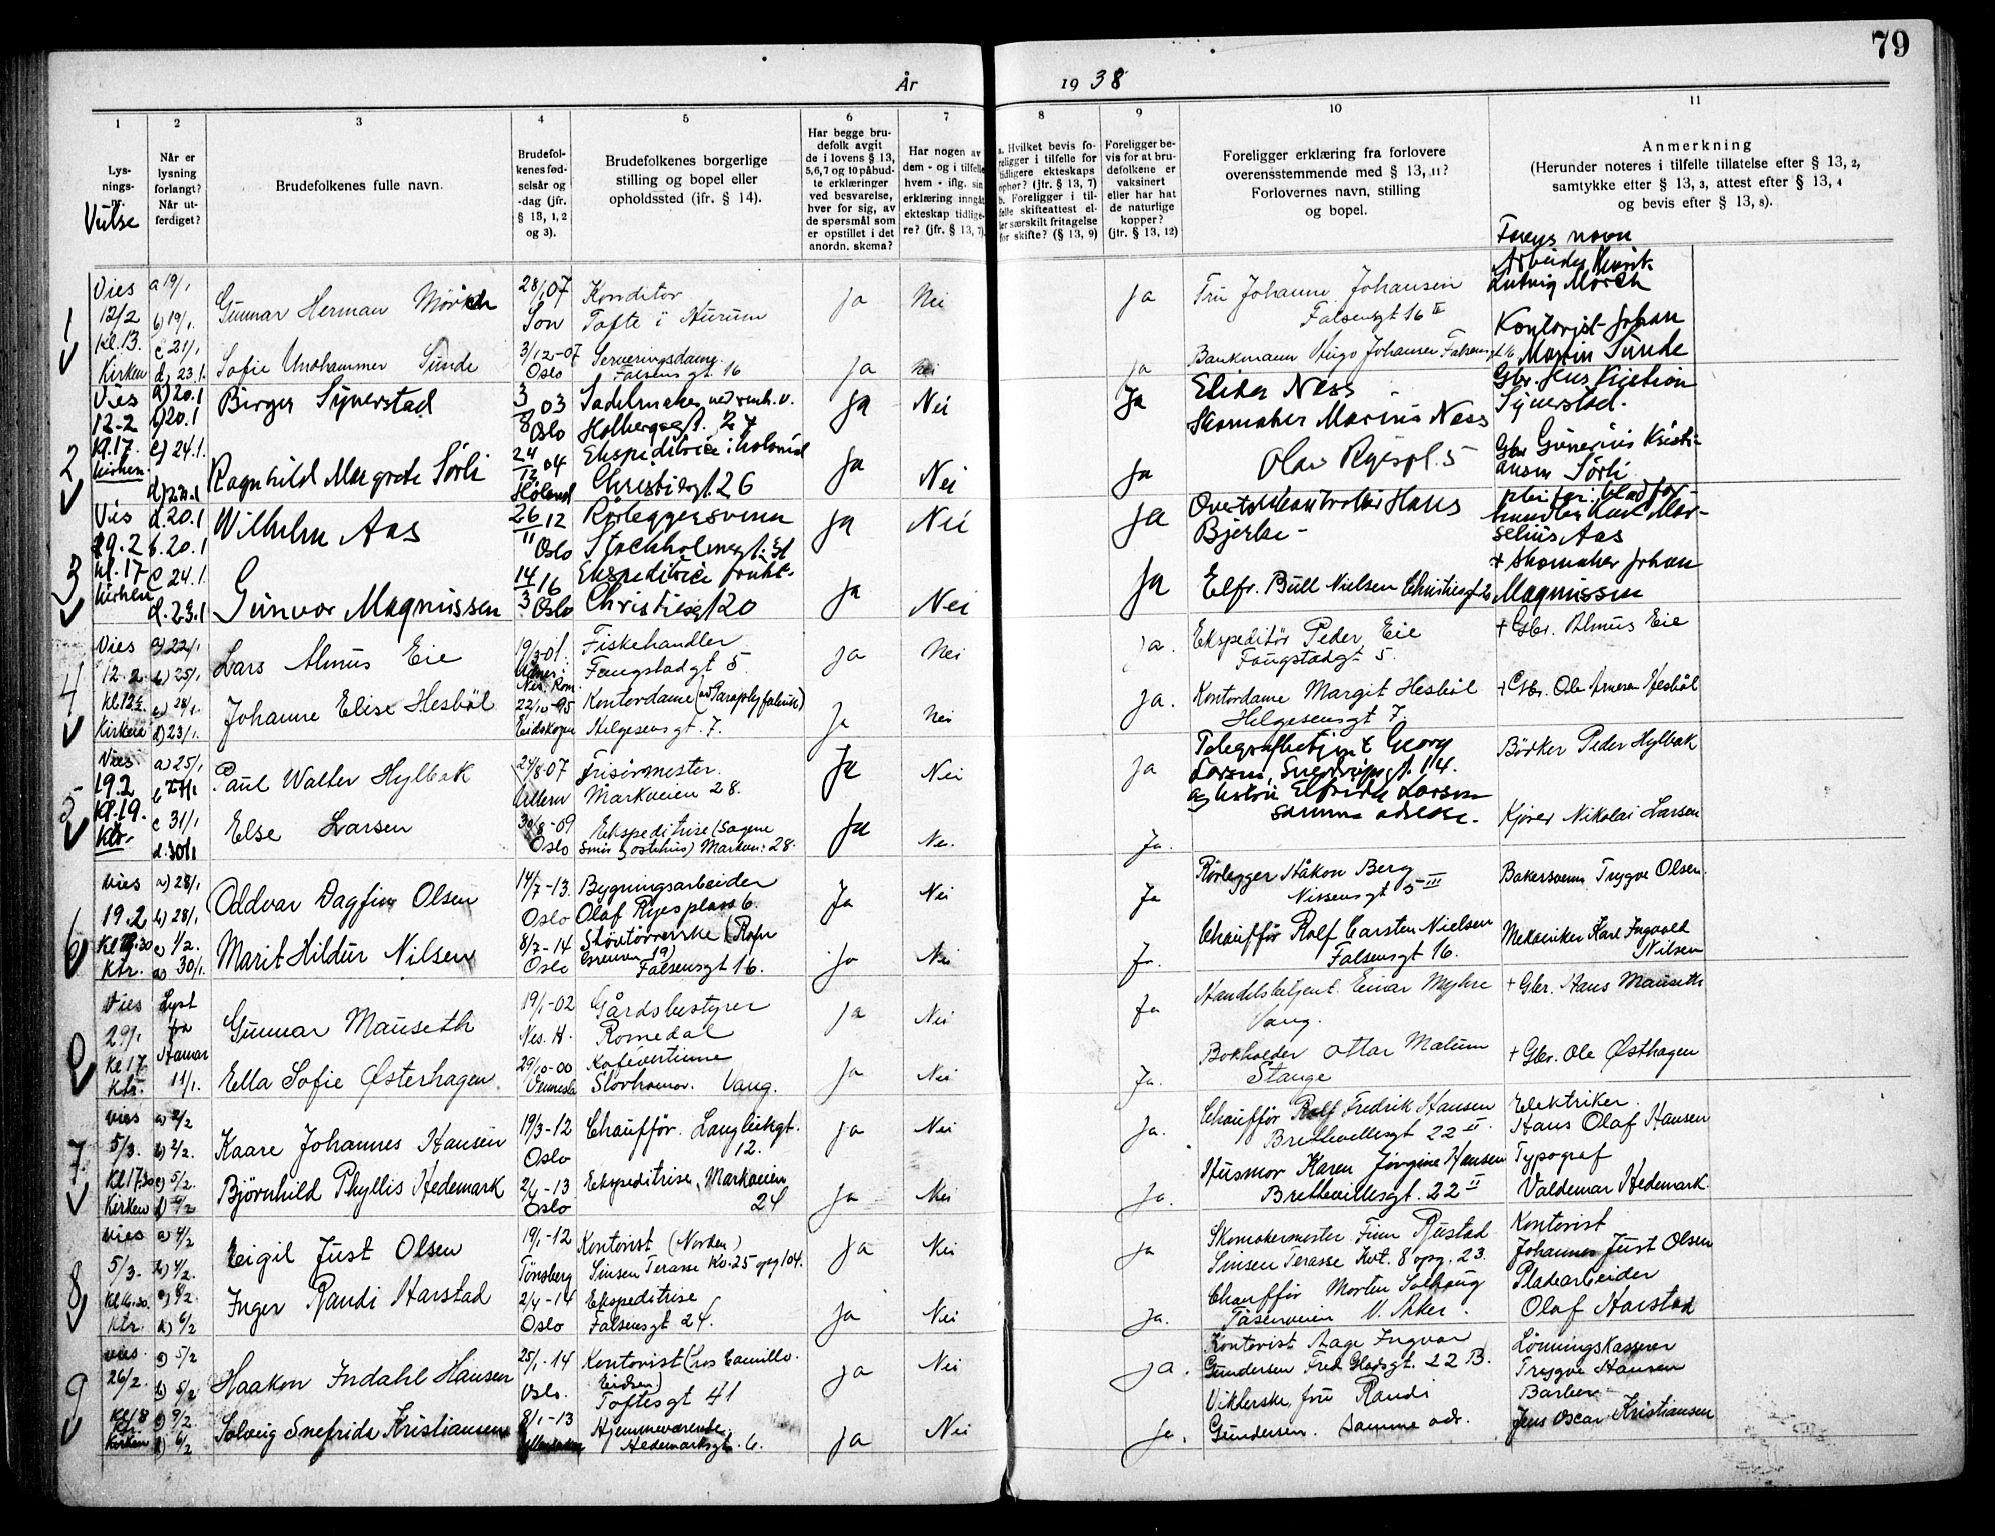 79
År 1938
1
2
3
4
5
6
7
8
9
10
11
Lys-
nings-
nr.
Når er
lysning
forlangt?
Når ut-
ferdiget?
Brudefolkenes fulle navn.
Brudefol-
kenes fød-
selsår og
-dag (jfr.
§ 13, 1, 2
og 3).
Brudefolkenes borgerlige
stilling og bopel eller
opholdssted (jfr. § 14).
Har begge bru-
defolk avgit
de i lovens § 13,
5, 6, 7 og 10 påbud-
te erklæringer
ved besvarelse,
hver for sig, av
de spørsmål som
er opstillet i det
anordn. skema?
Har nogen av
dem - og i tilfelle
hvem - iflg. sin
erklæring inngått
ekteskap tidlige-
re? (jfr. § 13, 7).
a. Hvilket bevis fo-
religger i tilfelle for
tidligere ekteskaps
ophør? (jfr. § 13, 7)
b. Foreligger i til-
felle skifteattest el-
ler særskilt fritagelse
for skifte? (§ 13, 9)
Foreligger be-
vis for at bru-
defolkene er
vaksinert
eller har hat
de naturlige
kopper?
(jfr. § 13, 12)
Foreligger erklæring fra forlovere
overensstemmende med § 13, 11?
Forlovernes navn, stilling
og bopel.
Anmerkning
(Herunder noteres i tilfelle tillatelse efter § 13, 2,
samtykke efter § 13, 3, attest efter § 13, 4
og bevis efter § 13, 8).
Farens navn
1
Vies
12/2
Kl. 13.
Kirken
a 19/1
b) 19/1.
c 21/1
d) 23.1.
Gunnar Herman Mørch
28/1 07
Son
Konditor
Tofte i Hurum
Ja
Nei
Ja
Fru Johanne Johansen
Falsensgt 16 II
Arbeider
Ludvig Mørch
Sofie Sunde
3/12-07
Oslo
Serveringsdame.
Falsens gt. 16
Ja
Nei
Ja
Hugo Johansen Falsensgt 16
Kontorist Johan
Martin Sunde
2
Vies
12-2
Kl. 17.
Kirken
a) 20.1
b) 20.1
c) 24.1.
Birger Synerstad
3/8 03
Oslo
Holbergsgt. 27
Ja
Nei
Ja
Elida Næss
Skomaker Marius Næss
Gbr. Jens Kristian
Synerstad.
Ragnhild Margrete Sørli
24/12 04
Høland
Christiesgt. 26
Ja
Nei
Ja
Olav Ryespl. 5
Gbr Gunerius Kristi-
ansen Sørli
3
Vis
19.2
kl. 17
kirken
a. 20.1
b. 20.1
c 24.1.
d. 23.1
Wilhelm Aas
26/11 12
Oslo
Rørleggersvenn
Ja
Nei
Ja
Hans
Bjerke -
selius Aas
Gunvor Magnussen
14/3 16
Oslo
Christiesgt 20
Ja
Nei
Ja
Elfr. Bull Nielsen Christiesgt 20
+ Skomaker Johan
Magnussen
4
Vies
12.2
Kirken
a) 22/1
b) 25/1
c) 28/1.
d) 23/1.
Lars Almus Eie
19/3-01.
Fiskehandler
Faugstadgt 5
Ja
Nei
Ja.
Ekspeditør Peder Eie
Faugstadgt 5.
+ Gbr. Almus Eie
Johanne Elise Hesbøl
22/10-95
Eidskogen
Kontordame
Helgesensgt. 7.
Ja
Nei
Ja.
Kontordame Margit Hesbøl
Helgesensgt 7.
+ Gbr. Ole Hesbøl
5
Vies
19.2
Kl. 19.
Ktr.
a) 25/1
b 27/1
c 31/1
d. 30/1
Paul Walter Hylbak
24/8-07
Ullern
Frisørmester.
Markveien 28.
Ja
Nei
Ja
Georg
Larsen,
og hustru Elfrida Larsen
samme adresse.
Børker Peder Hylbak
Else Larsen
30/8-09
Oslo
Ekspeditrise (Sagene
smør & ostehus) Markvn: 28.
Ja
Nei.
Ja.
Kjører Nikolai Larsen
6
Vies
19.2
Ktr.
a) 28/1
b) 28/1
c) 1/2.
d) 30/1.
Oddvar Dagfinn Olsen
14/7-13.
Oslo
Bygningsarbeider
Olaf Ryes plass 6.
Ja
Nei
Ja
Rørlegger Håkon Berg
Nissensgt 5 III
Bakersvenn Trygve Olsen.
Marit Hildur Nilsen
8/7-14
Oslo
Falsensgt 16.
Ja
Nei
Ja.
Chauffør Rolf Carsten Nielsen
Falsensgt 16.
Mekaniker Karl Ingvald
Nilsen
0
Vies
29/1
Kl 17
Ktr.
Lyst
fra
Hamar
11/1.
Gunnar Mauseth
19/1-02
Nes. H.
Gårdsbestyrer
Romedal
Ja
Nei
Ja
Handelsbetjent. Einar Myhre
Vang.
+ Gbr. Hans Mauseth
Ella Sofie Østerhagen
29/10-00
Vennesla
Kafévertinne
Storhamar. Vang.
Ja
Nei
Ja.
Bokholder Ottar Mælum
Stange
+ Gbr. Ole Østhagen
7
Vies
5/3.
Kl 17.30
Kirken
a) 2/2
b) 2/2.
c) 5/2.
Kaare Johannes Hansen
19/3-12
Oslo
Chauffør. Langleikgt.
12.
Ja
Nei
Ja.
Chauffør Rolf Fredrik Hansen
Brettevillesgt 22 II.
Elektriker.
Hans Olaf Hansen
Bjørnhild Phyllis Hedemark
2/4-13
Oslo
Ekspeditrise, Markveien
24
Ja
Nei
Ja.
Husmor Karen Jørgine Hansen
Brettevillesgt. 22 II
Typograf
Valdemar Hedemark.
8
Vies
5/3.
Kl 16.30.
Ktr.
a 4/2
b) 4/2.
c) 8/2.
d) 6/2
Eigil Just Olsen
19/1-12
Tønsberg
Kontorist (Norden)
Sinsen Terasse Kv. 25 opg 104.
Ja
Nei
Ja
Skomakermester Finn Rustad
Sinsen Terasse Kvt. 8 opg. 23.
Kontorist
Johannes Just Olsen
Inger Randi Harstad
2/4-14
Oslo
Ekspeditrise
Falsensgt 24.
Ja
Nei
Ja.
Chauffør Morten Solhaug
Tåsenveien V. Aker.
Pladearbeider
Olaf Harstad
9
Vies.
26/2.
Kl 18
Kirken
a) 5/2
b) 5/2
c) 9/2.
d) 6/2
Haakon Indahl Hansen
25/1-14
Oslo.
Kontorist (hos Camillo
Eidsen)
Toftesgt 41
Ja
Nei
Ja.
Kontorist Aage Ingvar
Gundersen Fred. Gladsgt. 22 B.
Lønningskasserer
Trygve Hansen
Solveig Snefrida Kristiansen
8/1-13
Hjemmeværende.
Hedemarksgt. 6.
Ja
Nei
Ja.
Viklerske, fru Randi
Gundersen. Samme adr.
Barber
Jens Oscar Kristiansen